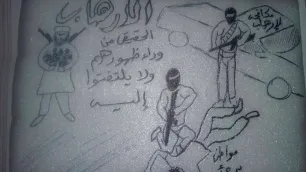 الارهاب
الحقيقي من
وراء ظهورهم
ولا يلتفتوا
إليه
مواطن